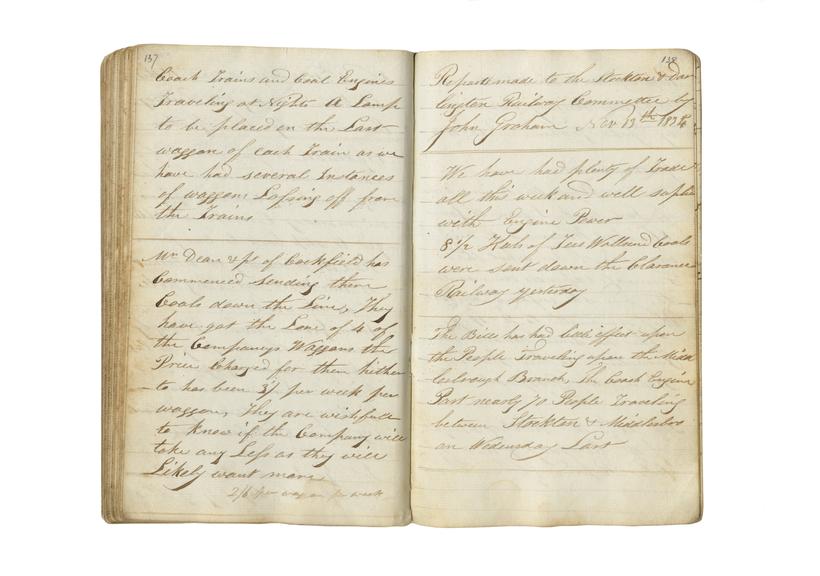 137
Coach Trains and Coal Engines
Traveling at Nights A Lamp
to be placed on the Last
waggon of each Train as we
have had several Instances
of waggons Lossing off from
the Trains
Mr Dean & Ps of Cockfield has
Commenced Sending there
Coals down the Line, They
have got the Lone of 4 of
the Companys Waggons the
Price Charged for them hither
to has been 3/ per week per
waggon, They are wishfull
to know if the Company will
take any Less as they will
Likely want more
2/6 per wagon per week
138
Reports made to the Stockton & Dar
lington Railway Committee by
John Graham Nov 13th 1834
We have had plenty of Trade
all this week and well suplied
with Engine Power
8 1/2 Keels of Tees Wallsend Coals
were sent down the Clarance
Railway yesterday
The Bills has had little effect upon
the People Traveling upon the Midd
lesbrough Branch, The Coach Engine
Past nearly 70 People Traveling
between Stockton & Middlesbro
on Wedensday Last